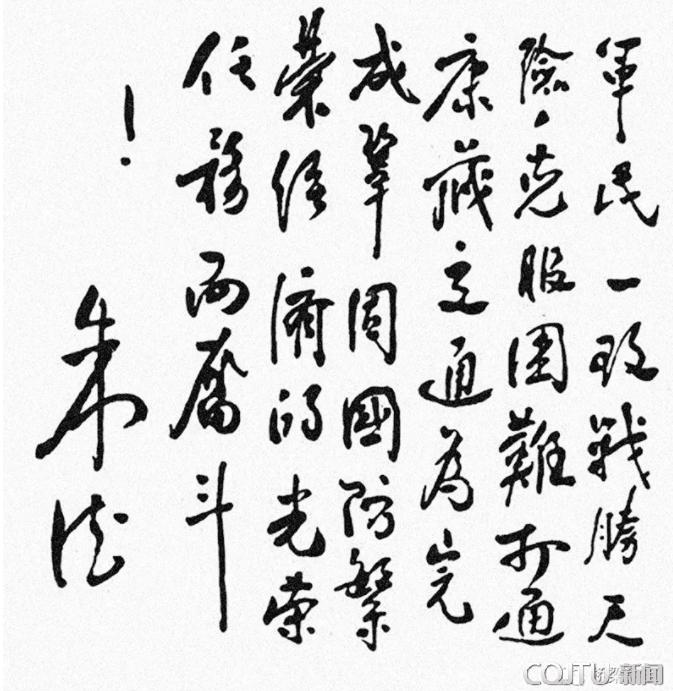 軍民一致戰勝天
險、克服困難打通
康藏交通為完
成鞏固國防繁
荣經濟的光荣
任務而奮斗
！
朱德
CQJTU 新闻